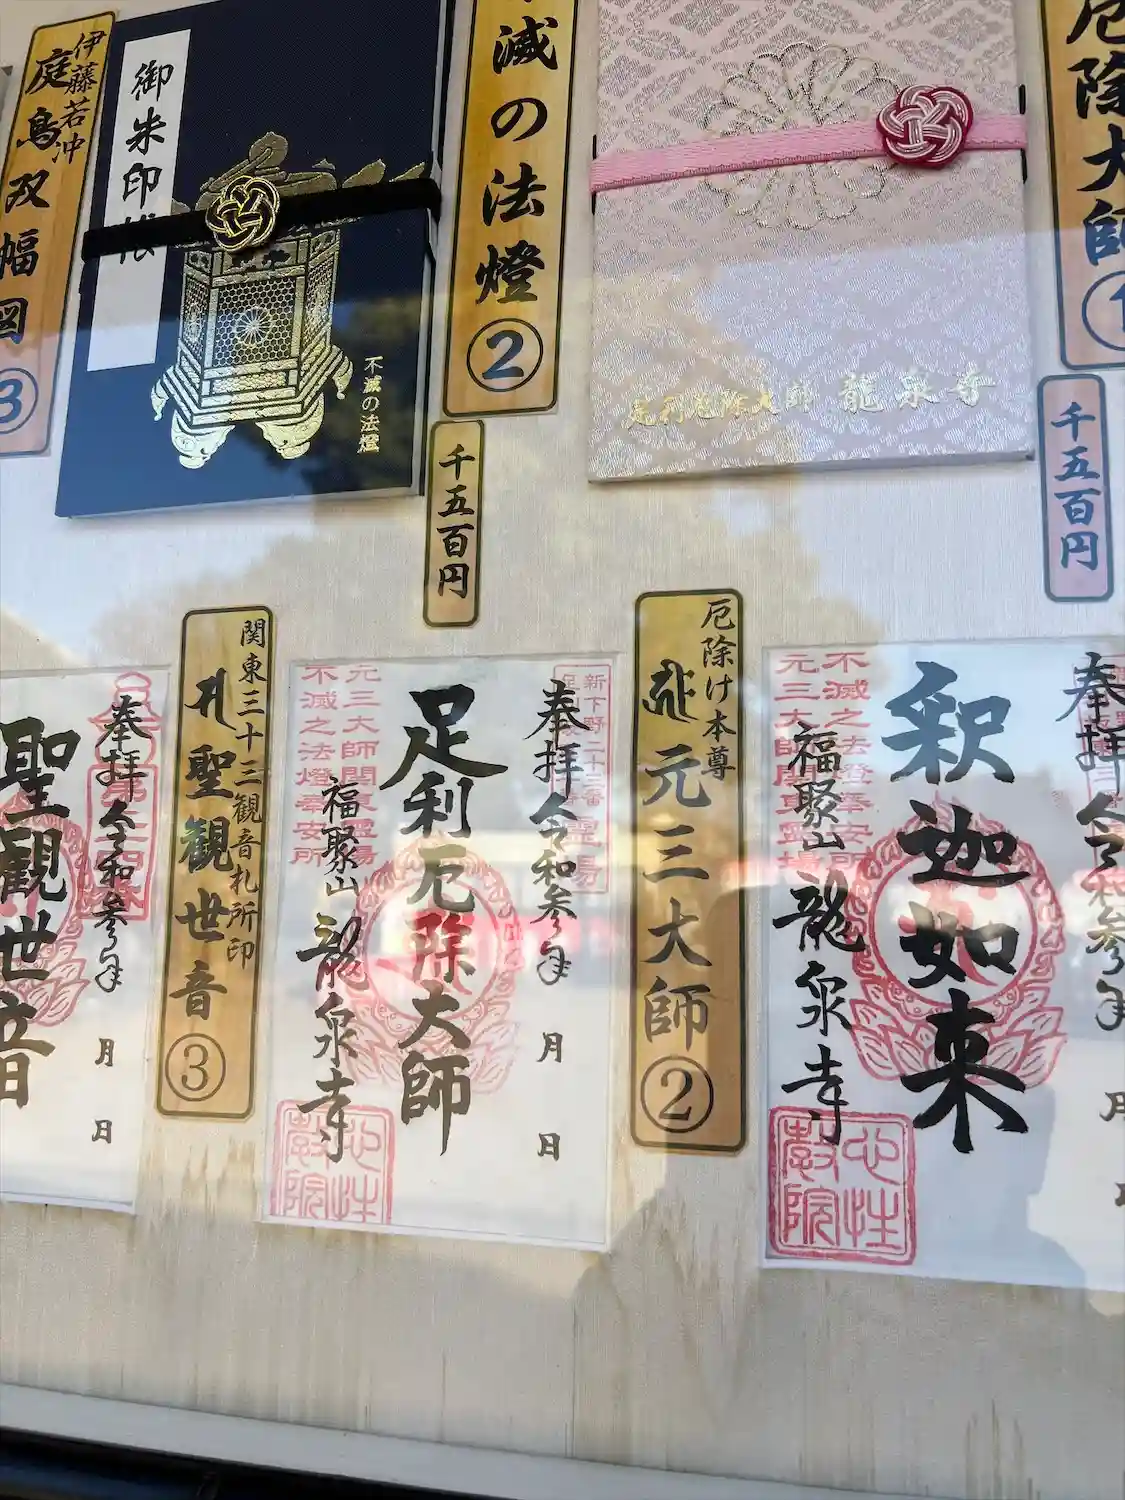 厄除大師
①
千五百円
足利厄除大師 龍泉寺
不滅の法燈
②
千五百円
御朱印帳
不滅の法燈
伊藤若冲
庭鳥双幅図
③
奉拝
釈迦如来
不滅之法燈奉安所
元三大師関東霊場
福聚山 龍泉寺
心性
教院
厄除け本尊
元三大師
②
奉拝 令和参年 月 日
足利厄除大師
元三大師関東霊場
不滅之法燈奉安所
福聚山 龍泉寺
心性
教院
関東三十三観音札所印
聖観世音
③
奉拝 令和参年 月 日
聖観世音